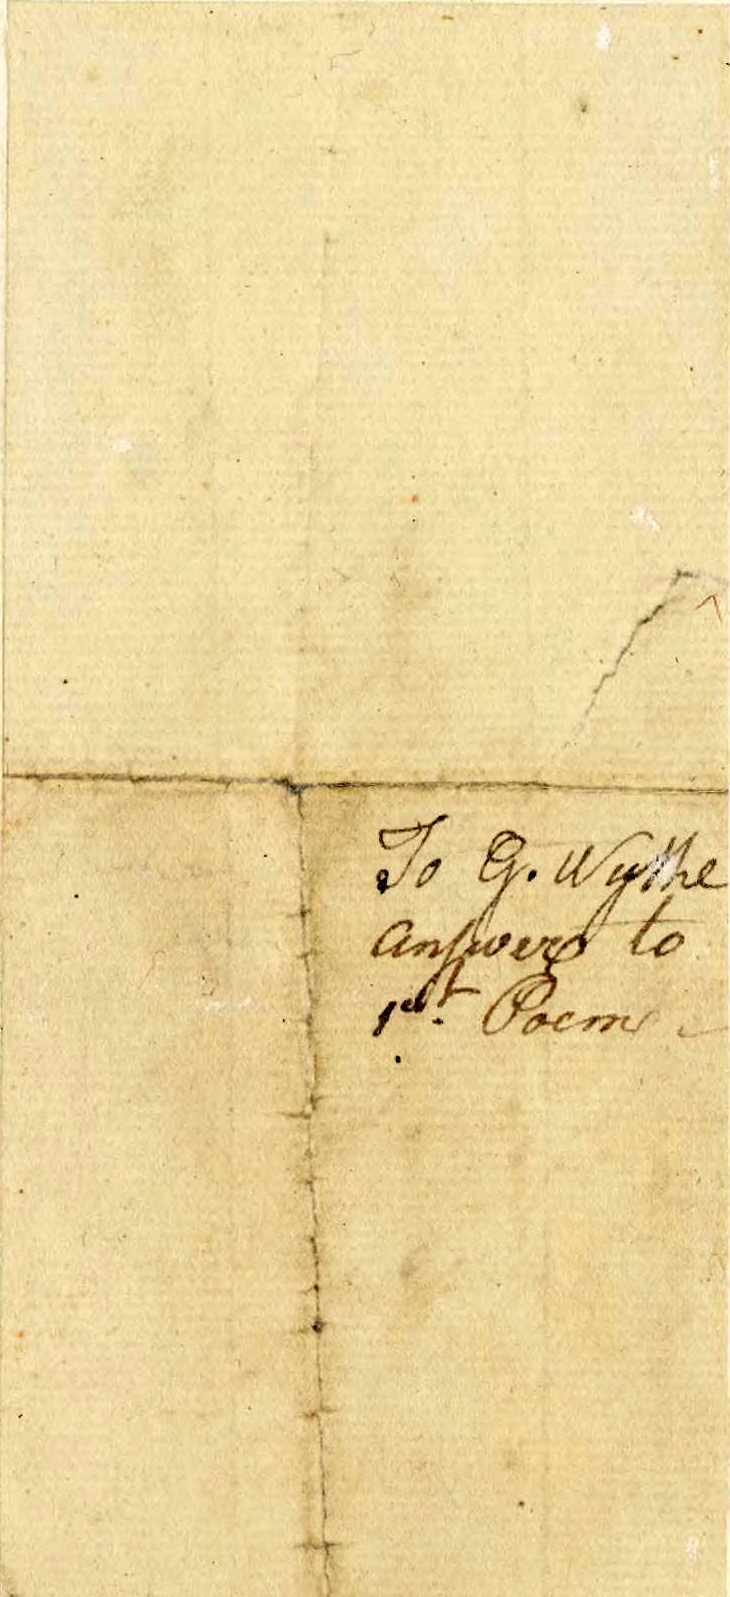 To G. Wythe
answers to
1st. Poem